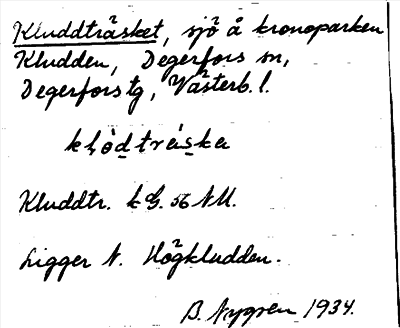 Kluddträsket, sjö å kronoparken
Kludden, Degerfors sn,
Degerfors tg, Västerb. l.
Kluddtr. k G. 56 NU.
Ligger N. Högkludden.
B. Nygren 1934.